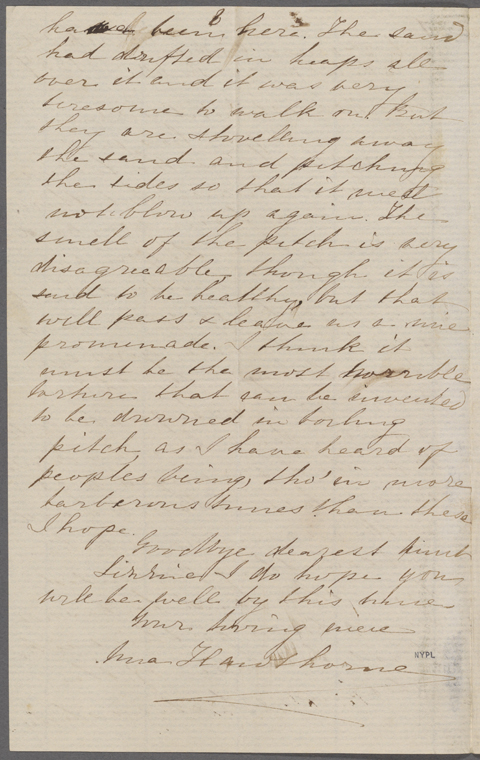 had been here. The sand
had drifted in heaps all
over it and it was very
tiresome to walk on. But
they are shovelling away
the sand and pitching
the sides so that it will
not blow up again. The
smell of the pitch is very
disagreeable, though it is
said to be healthy, but that
will pass & leave us a nice
promenade. I think it
must be the most horrible
torture that can be invented
to be drowned in boiling
pitch, as I have heard of
peoples being, tho' in more
barbarous times than these
I hope.
Goodbye dearest Aunt
Lizzie I do hope you
will be well by this time
Your loving niece
Una Hawthorne
NYPL